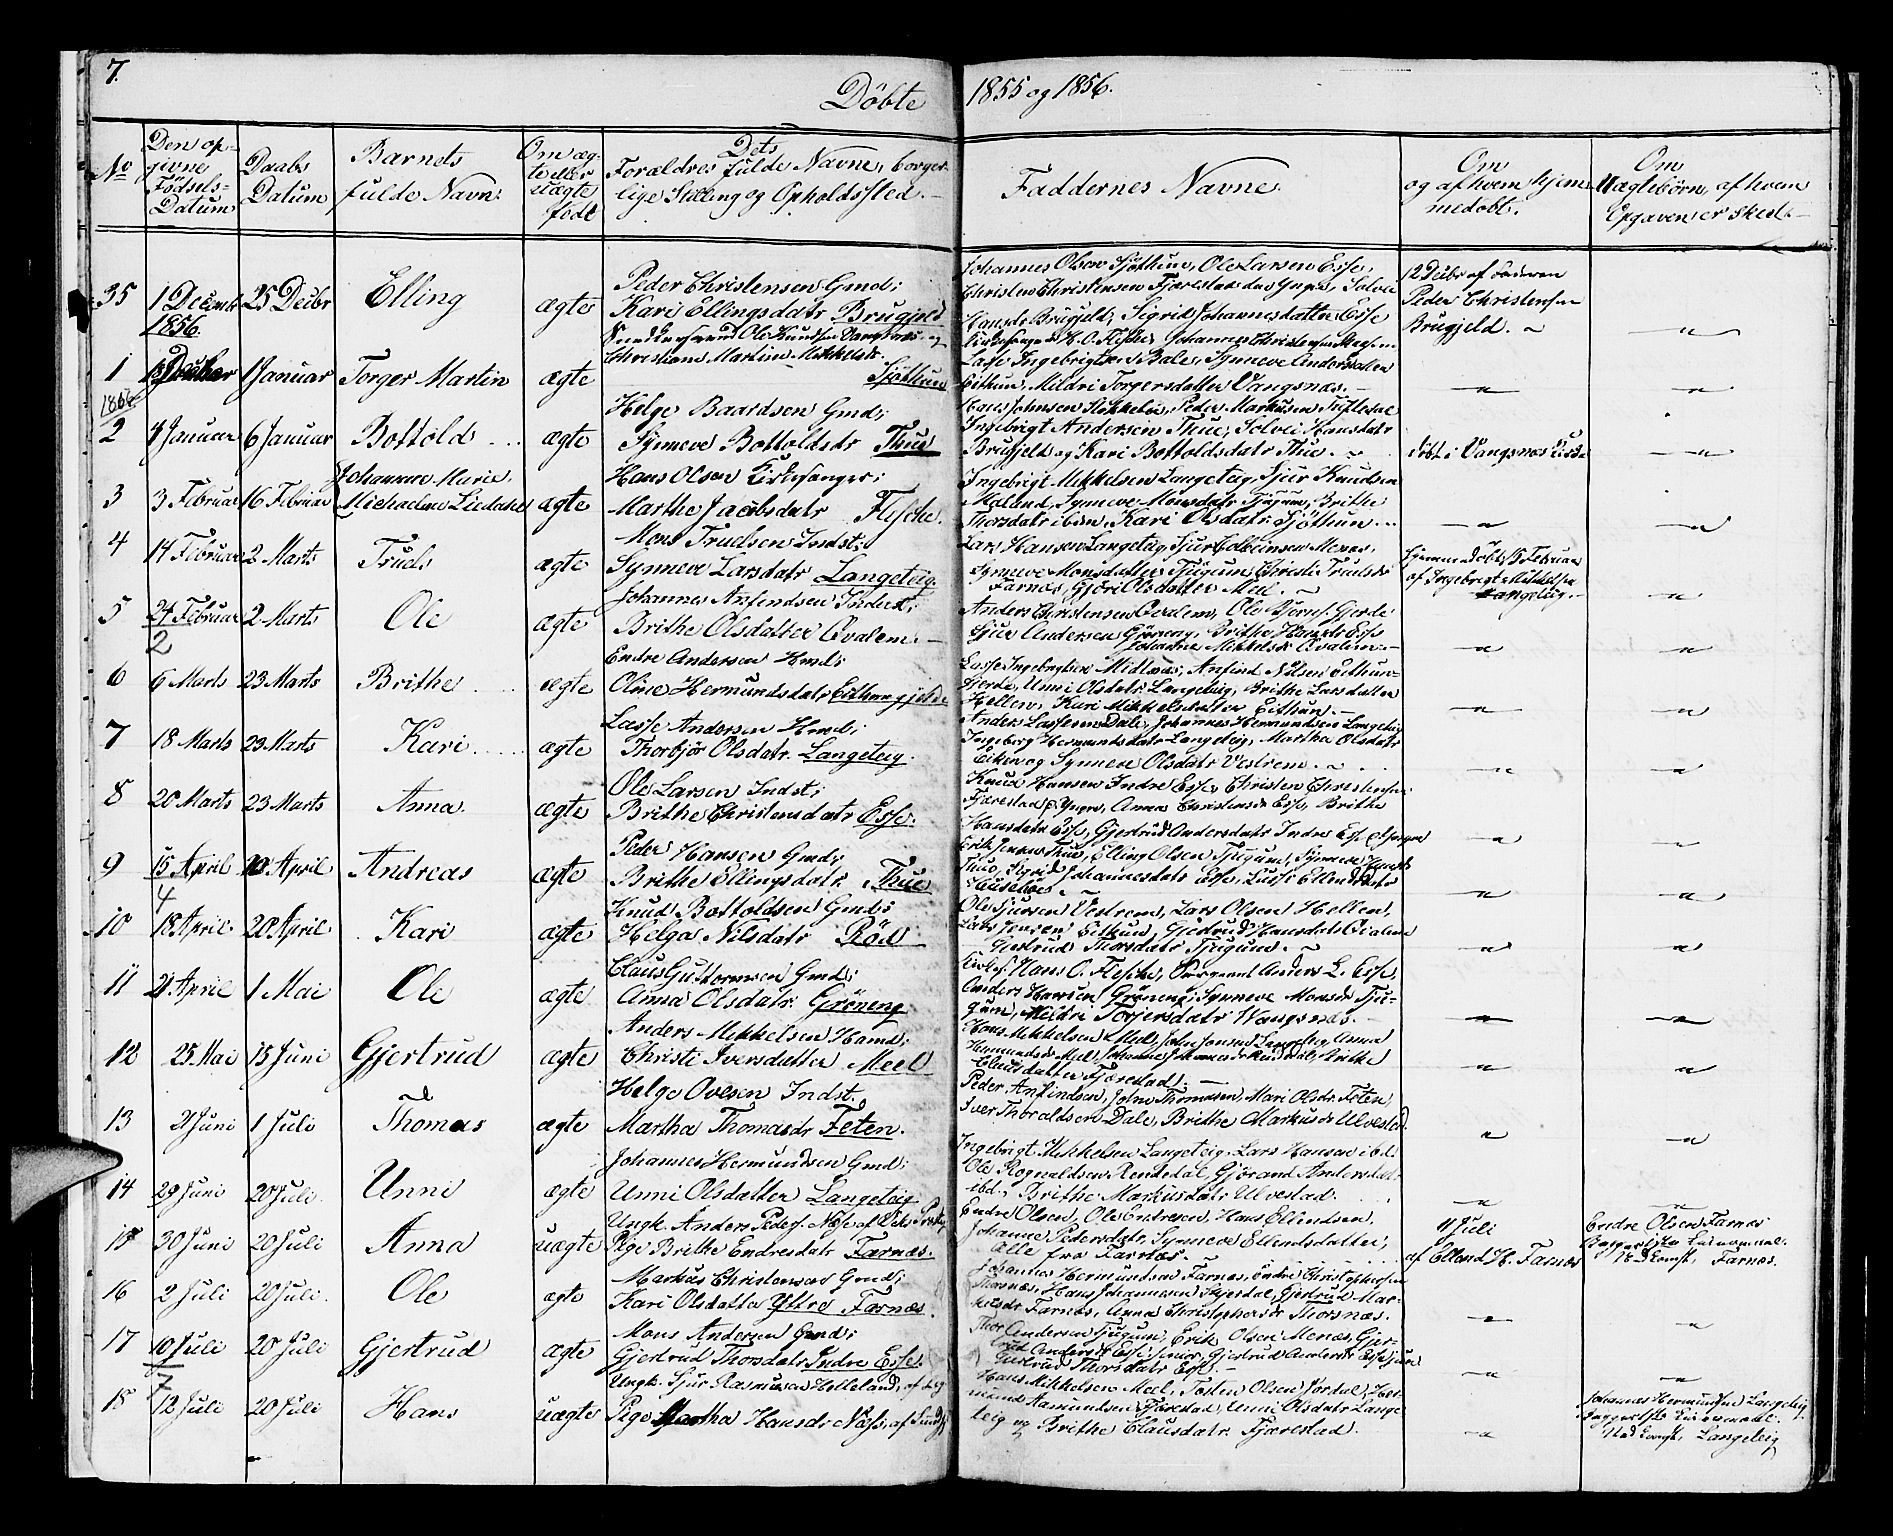 7.
Döbte 1855 og 1856.
No
Den op-
givne
Födsels-
Datum
Daabs
Datum
Barnets
fulde Navn.
Om æg-
te eller
uægte
födt
Dets
Forældres fulde Navne, borger-
lige Stilling og Opholdssted.
Faddernes Navne.
Om
og af hvem hjem-
medöbt.
Om
Uægtebörn, af hvem
Opgaven er skeet.
35 1 Decemb 25 Decbr Elling ægte
1856.
Peder Christensen Gmd;
Kari Ellingsdatr Brugjeld
Johannes Olsen Sjöthun, Ole Larsen Esse,
Christen Christensen Fjærestad den Yngre, Solvei
Hansdr Brugjeld, Sigrid Johannesdatter Esse
12 Decbr af Faderen
Peder Christensen
Brugjeld.
1 1 Januar Torger Martin ægte
Ole Knudsen Vangsnæs og
Christiane Martine Mikkelsdr. Sjöthun
Kirkesanger H. O. Flesche, Johannes Christensen
Lasse Ingebrigtsen Bale, Synneve Andersdatter
Eithun, Mildri Torgersdatter Vangsnæs.
2 4 Januar 6 Januar Bottold ægte
Helge Baardsen Gmd;
Synneve Bottoldsdtr Thue
Hans Johnsen Stokkebö, Peder Markusen Tuftesae
Ingebrigt Andersen Thue, Solvei Hansdatr
Brugjeld og Kari Bottoldsdatr Thue.
döbt i Vangsnæs Kirke
3 3 Februar 16 Februar Johanne Marie ægte
Hans Olsen Kirkesanger;
Marthe Jacobsdatr Flesche.
Ingebrigt Mikkelsen Langeteig, Sjur Knudsen
Synneve Monsdatr Tjugum, Brithe
Thorsdatr ibidm, Kari Olsdatr Sjöthun.
4 14 Februar 2 Marts Truls ægte
Mons Trulsen Indst;
Synneve Larsdatr Langeteig.
Lars Hansen Langeteig, Sjur Menæs,
Synneve Monsdatter Tjugum, Christi Trulsdr
Farnæs, Gjöri Olsdatter Meel.
hjemmedöbt 15 Februar
af Ingebrigt Mikkelsen
Langeteig.
5 24 Februar 2 Marts Ole ægte
2
Johannes Anfindsen Inderst;
Brithe Olsdatter Qvalem.
Anders Christensen Qvalem, Ole Gjerde
Sjur Andersen Gröneng, Brithe Hansdr Esse
Johanne Mikkelsdr Qvalem.
6 6 Marts 23 Marts Brithe ægte
Endre Andersen Hmd;
Oline Hermundsdatr Eithungjerde
Lasse Ingebrigtsen Midlnæs, Anfind Nilsen Eithun-
gjerde, Unni Olsdatr Langeteig, Brithe Larsdatter
Hellen, Kari Mikkelsdatter Eithun.
7 18 Marts 23 Marts Kari ægte
Lasse Andersen Hmd;
Thorbjör Olsdatr. Langeteig.
Anders Lassesen Dale, Johannes Hermundsen Langeteig
Ingeborg Hermundsdatr Langeteig, Martha Olsdatr
Eiken og Synneve Olsdatr Vestrem.
8 20 Marts 23 Marts Anna ægte
Ole Larsen Indst;
Brithe Christensdatr Esse.
Knud Hansen Indre Esse, Christen Christensen
Fjærestad d. Yngre, Anna Christensdr Esse, Brithe
Hansdatr Esse, Gjertrud Andersdatr Indre Esse
9 15 April 20 April Andreas ægte
4
Peder Hansen Gmd;
Brithe Ellingsdatr Thue
Erik Jensen Thue, Elling Olsen Tjugum, Synneve Hansdr
Thue, Sigrid Johannesdatr Esse, Lussi Ellendsdatr
10 18 April 20 April Kari ægte
Knud Bottoldsen Gmd;
Helga Nilsdatr Röd
Ole Sjursen Vestrem, Lars Olsen Hellen,
Lars Jensen Eithun, Gjertrud Hansdatr Qvalem
Gjertrud Thorsdatr Tjugum.
11 21 April 1 Mai Ole ægte
Claus Guttormsen Gmd;
Anna Olsdatr. Gröneng
Kirkes. Hans O. Flesche, Sergeant Anders L. Esse
Anders Hansen Gröneng, Synneve Monsdr Tju-
gum, Mildri Torjersdatr Wangsnæs.
12 25 Mai 15 Juni Gjertrud ægte
Anders Mikkelsen Hmd;
Christi Iversdatter Meel
Hans Mikkelsen Meel, John Jonsen Langeteig, Anna
Hermundsdr Meel, Johanne Johannesdr Rendedal, Brithe
Clausdatter Fjærestad.
13 21 Juni 1 Juli Thomas ægte
Helge Ovesen Indst.
Martha Thomasdr Feten.
Peder Anfindsen, John Thomasen, Mari Olsdr Feten,
Iver Thoraldsen Dale, Brithe Markusdr Ulvestad.
14 29 Juni 20 Juli. Unni ægte
Johannes Hermundsen Gmd;
Unni Olsdatter Langeteig
Ingebrigt Mikkelsen Langeteig, Lars Hansen ibd.
Ole Rognaldsen Rendedal, Gjörand Andersdatr
ibd., Brithe Markusdatr Ulvestad.
15 30 Juni 20 Juli Anna uægte
Ungk. Anders Peders. Næse af Viks Præstg.
Pige Brithe Endresdatr Farnæs.
Endre Olsen, Ole Endresen, Hans Ellendsen,
Johanne Pedersdatr, Synneve Ellendsdatter,
Alle fra Farnæs.
4 Juli
af Ellend H. Farnæs
Endre Olsen Farnæs
Farnæs.
16 2 Juli 20 Juli. Ole ægte
Markus Christensen Gmd;
Kari Olsdatter Yttre Farnæs.
Johannes Hermundsen Farnæs, Endre Christophersen
Thorsnæs, Hans Johannesen Skjerdal, Gjertrud Mar-
kusdr Farnæs, Anna Christophersdr Thorsnæs.
17 10 Juli 20 Juli Gjertrud ægte
7
Mons Andersen Gmd;
Gjertrud Thorsdatr Indre Esse.
Thor Andersen Tjugum, Erik Olsen Menæs, Gjer-
trud Andersdr Esse senior, Gjertrud Andersdr Esse junr
Gjertrud Thorsdatr Esse.
18 12 Juli 20 Juli Hans uægte
Ungk. Sjur Rasmusen Helleland, af
Pige Martha Hansdr Næss, af Sund
Hans Mikkelsen Meel, Tosten Olsen Jordal, Her-
mund Rasmundsen Fjærestad, Unni Olsdatr Lange-
teig og Brithe Clausdatr. Fjærestad.
Johannes Hermundsen Langeteig
Langeteig